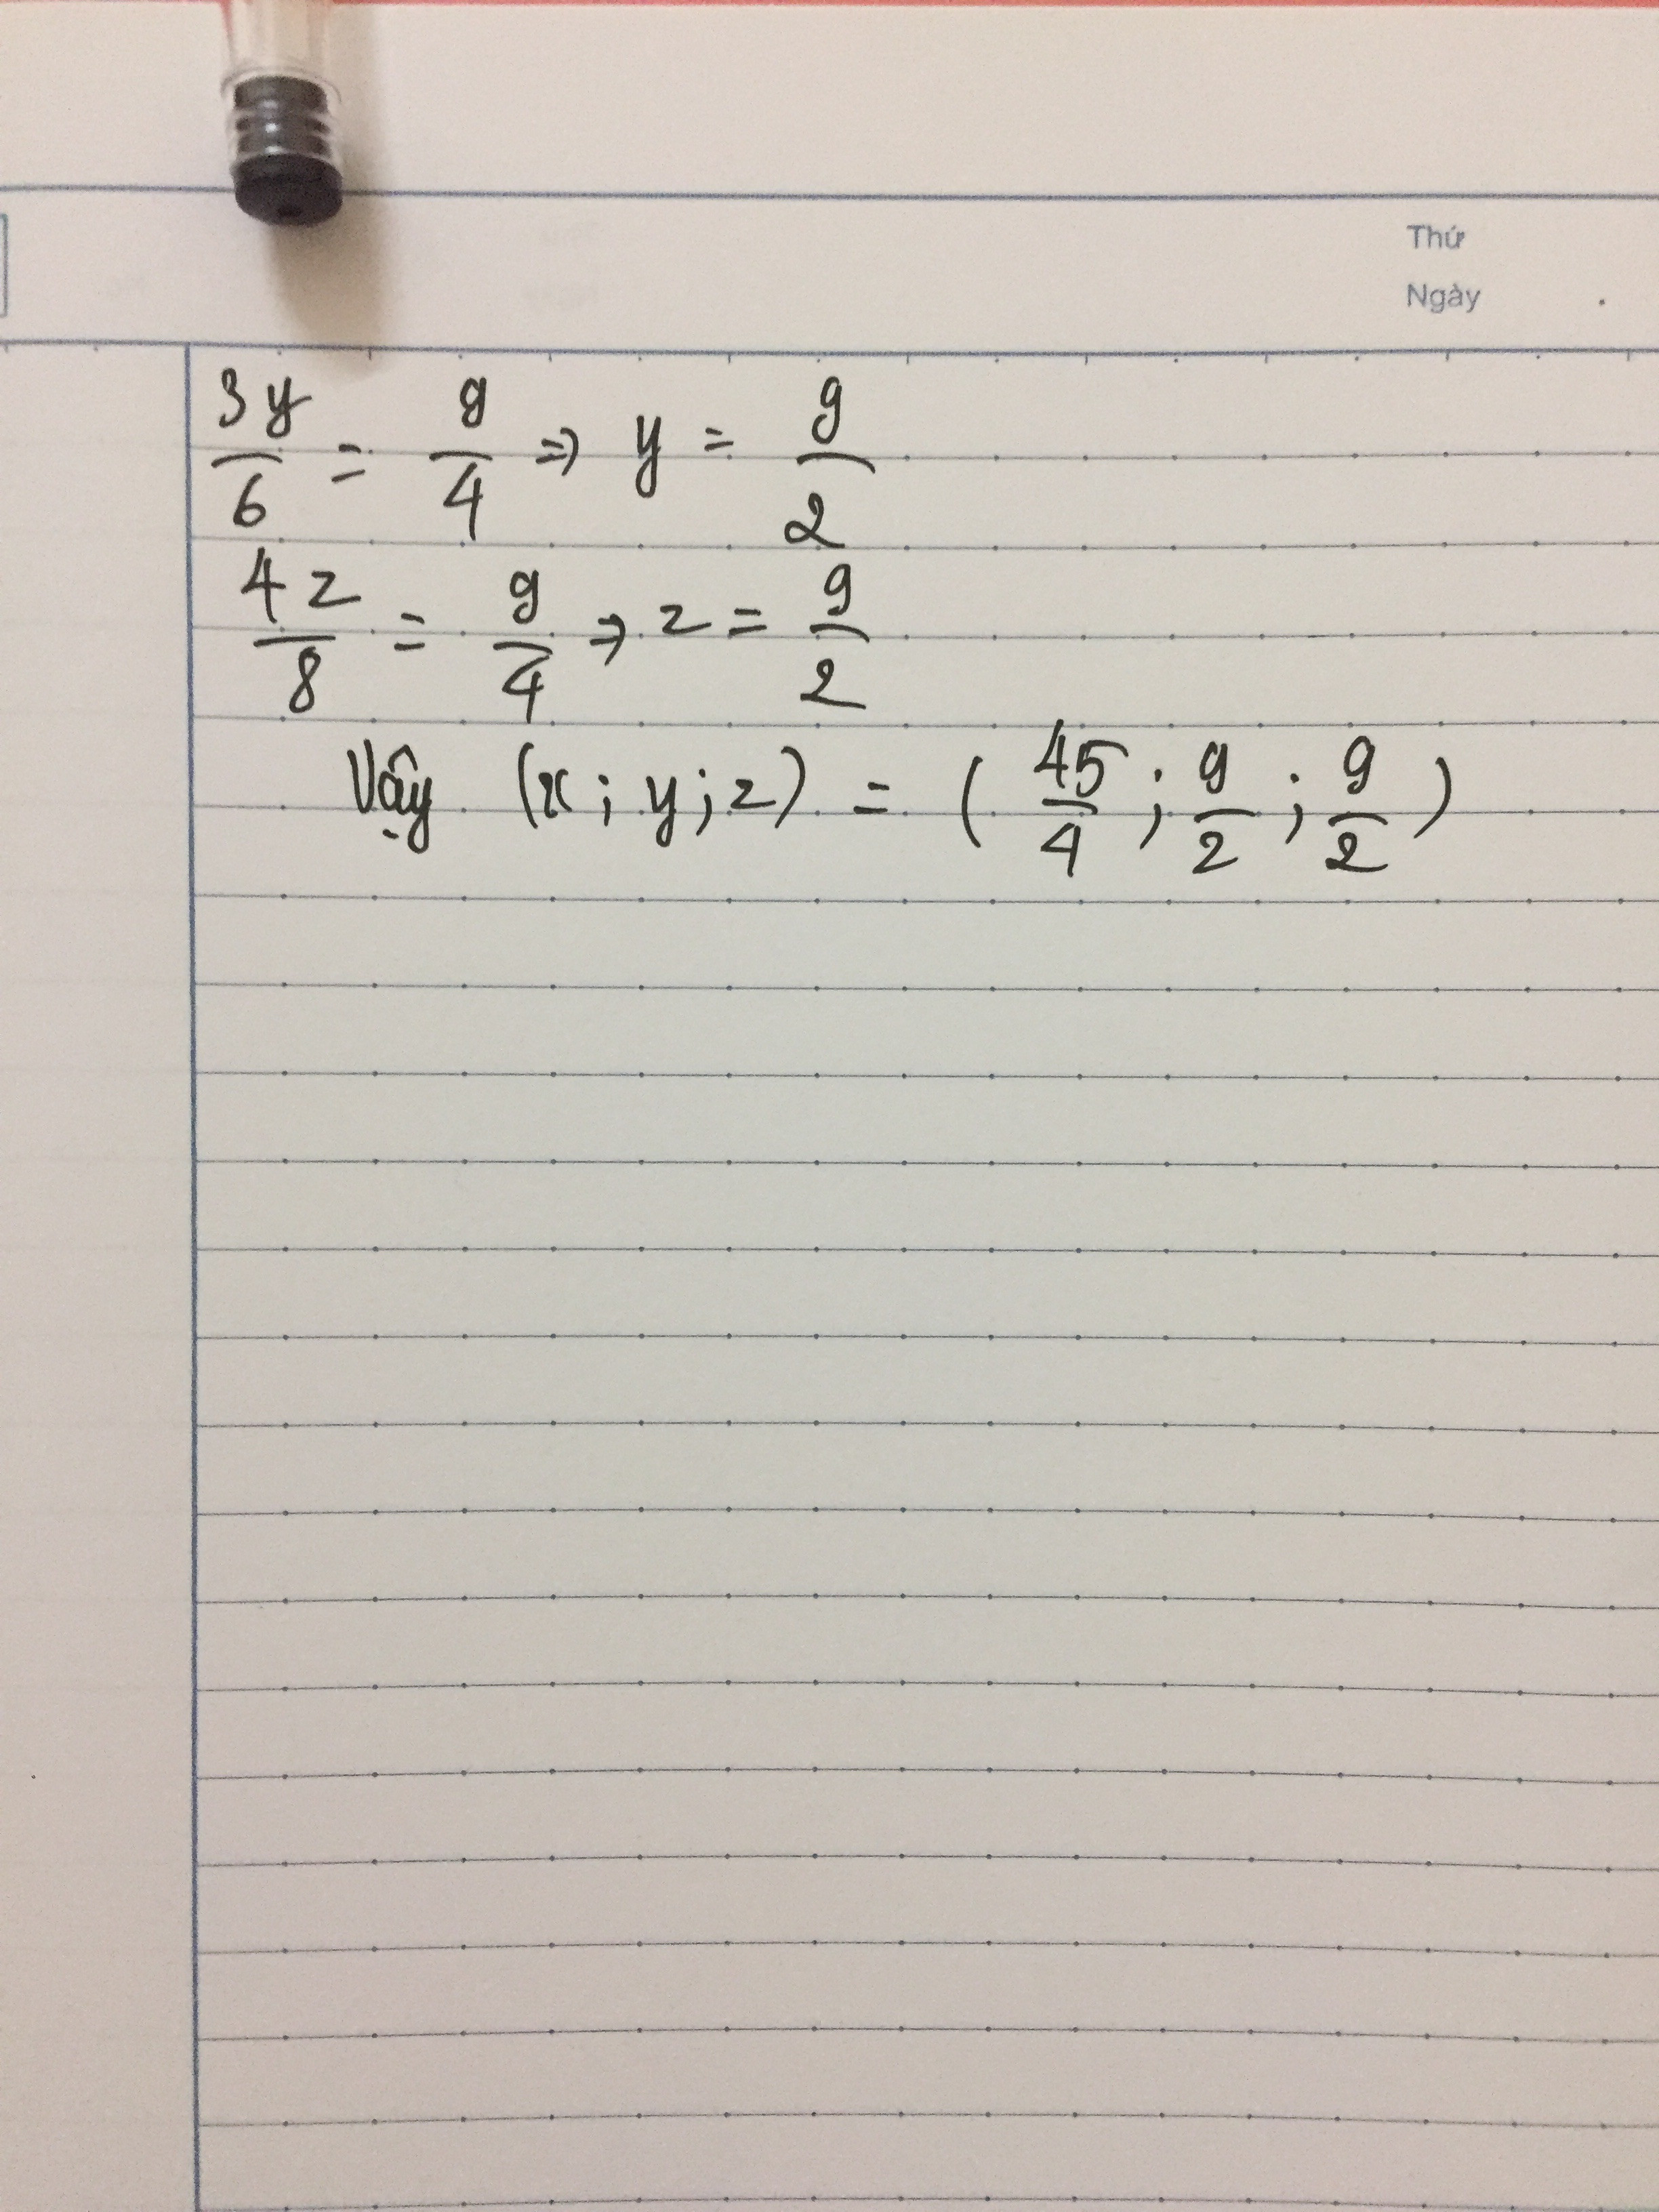 Thứ
Ngày
3y/6 = 9/4 => y = 9/2
4z/8 = 9/4 => z = 9/2
Vậy (x; y; z) = (45/4; 9/2; 9/2)